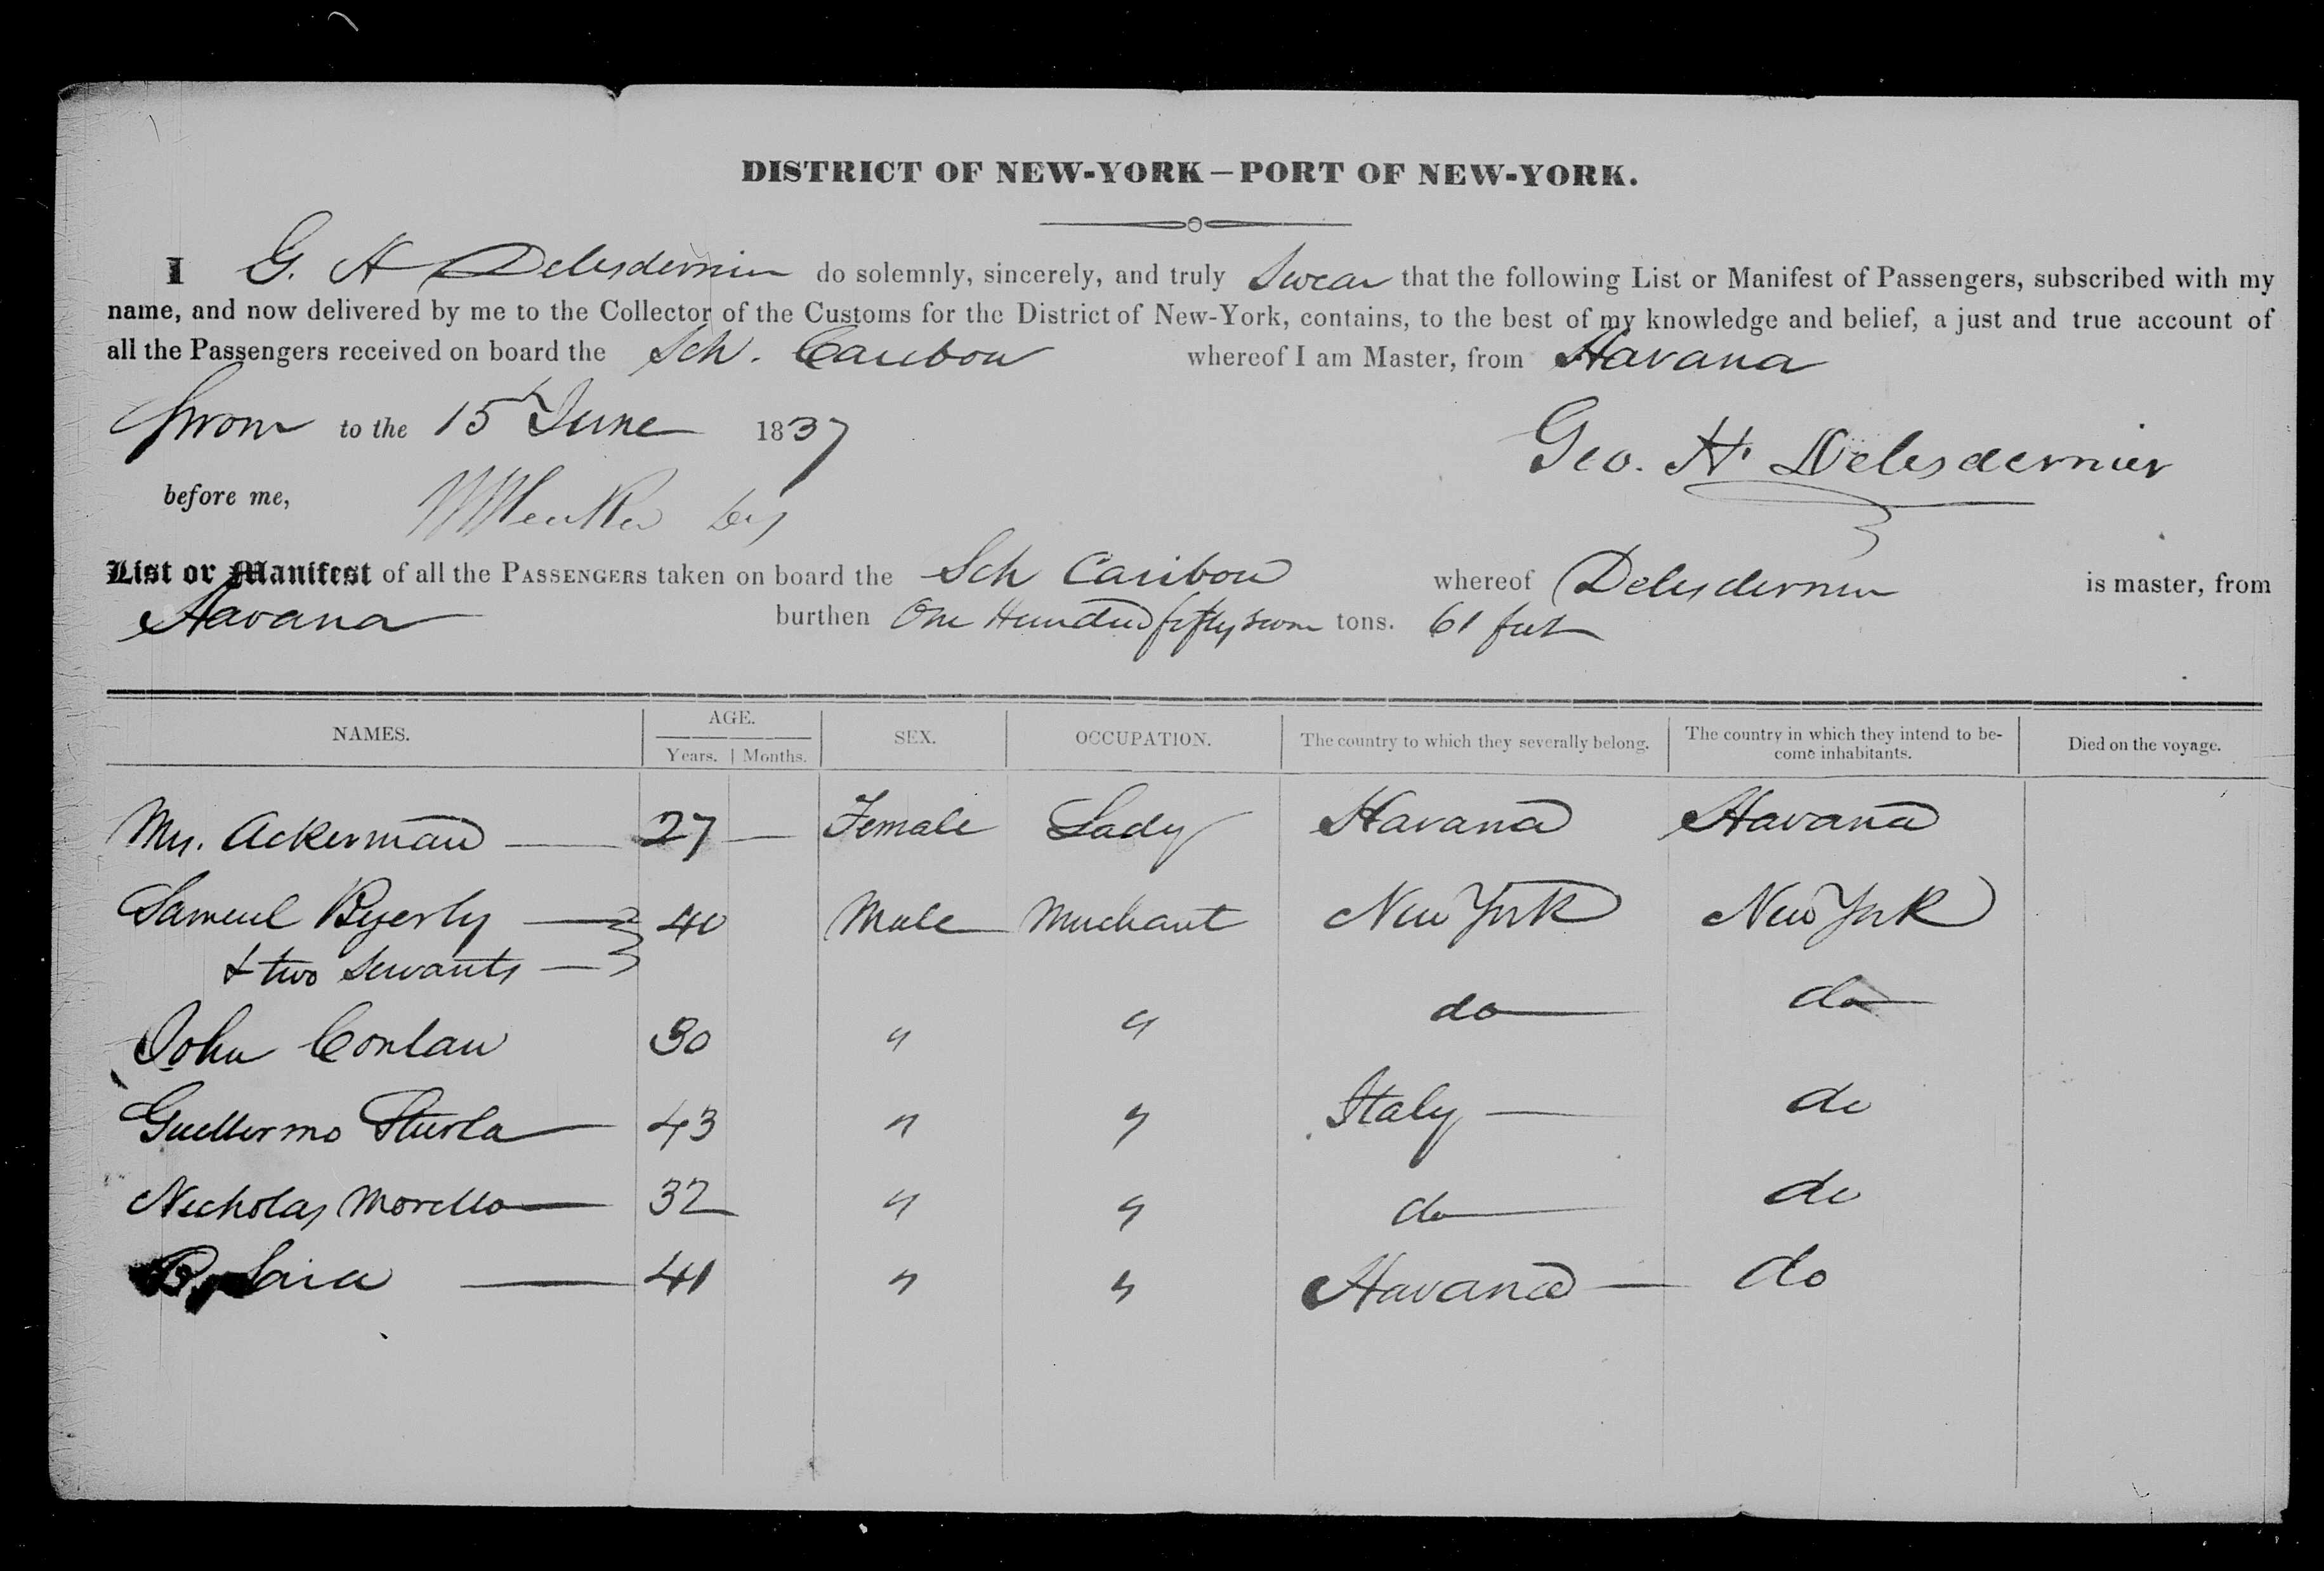 DISTRICT OF NEW-YORK—PORT OF NEW-YORK.
I G. H Delesdernier do solemnly, sincerely, and truly Swear that the following List or Manifest of Passengers, subscribed with my
name, and now delivered by me to the Collector of the Customs for the District of New-York, contains, to the best of my knowledge and belief, a just and true account of
all the Passengers received on board the Sch. Caribou whereof I am Master, from Havana
Sworn to the 15 June 1837
Geo. H. Delesdernier
before me,
List or Manifest of all the PASSENGERS taken on board the Sch Caribou whereof Delesdernier is master, from
Havana burthen One Hundred fifty seven tons. 61 feet
NAMES. AGE. Years. Months. SEX. OCCUPATION. The country to which they severally belong. The country in which they intend to be-come inhabitants. Died on the voyage.
Mrs. Ackerman 27 — Female Lady Havana Havana
Samuel Byerly 40 Male Merchant New York New York
& two Servants
John Conlan 30 " " do do
Guellermo Sturla 43 " " Italy do
Necholas Morello 32 " " do do
41 " " Havana do